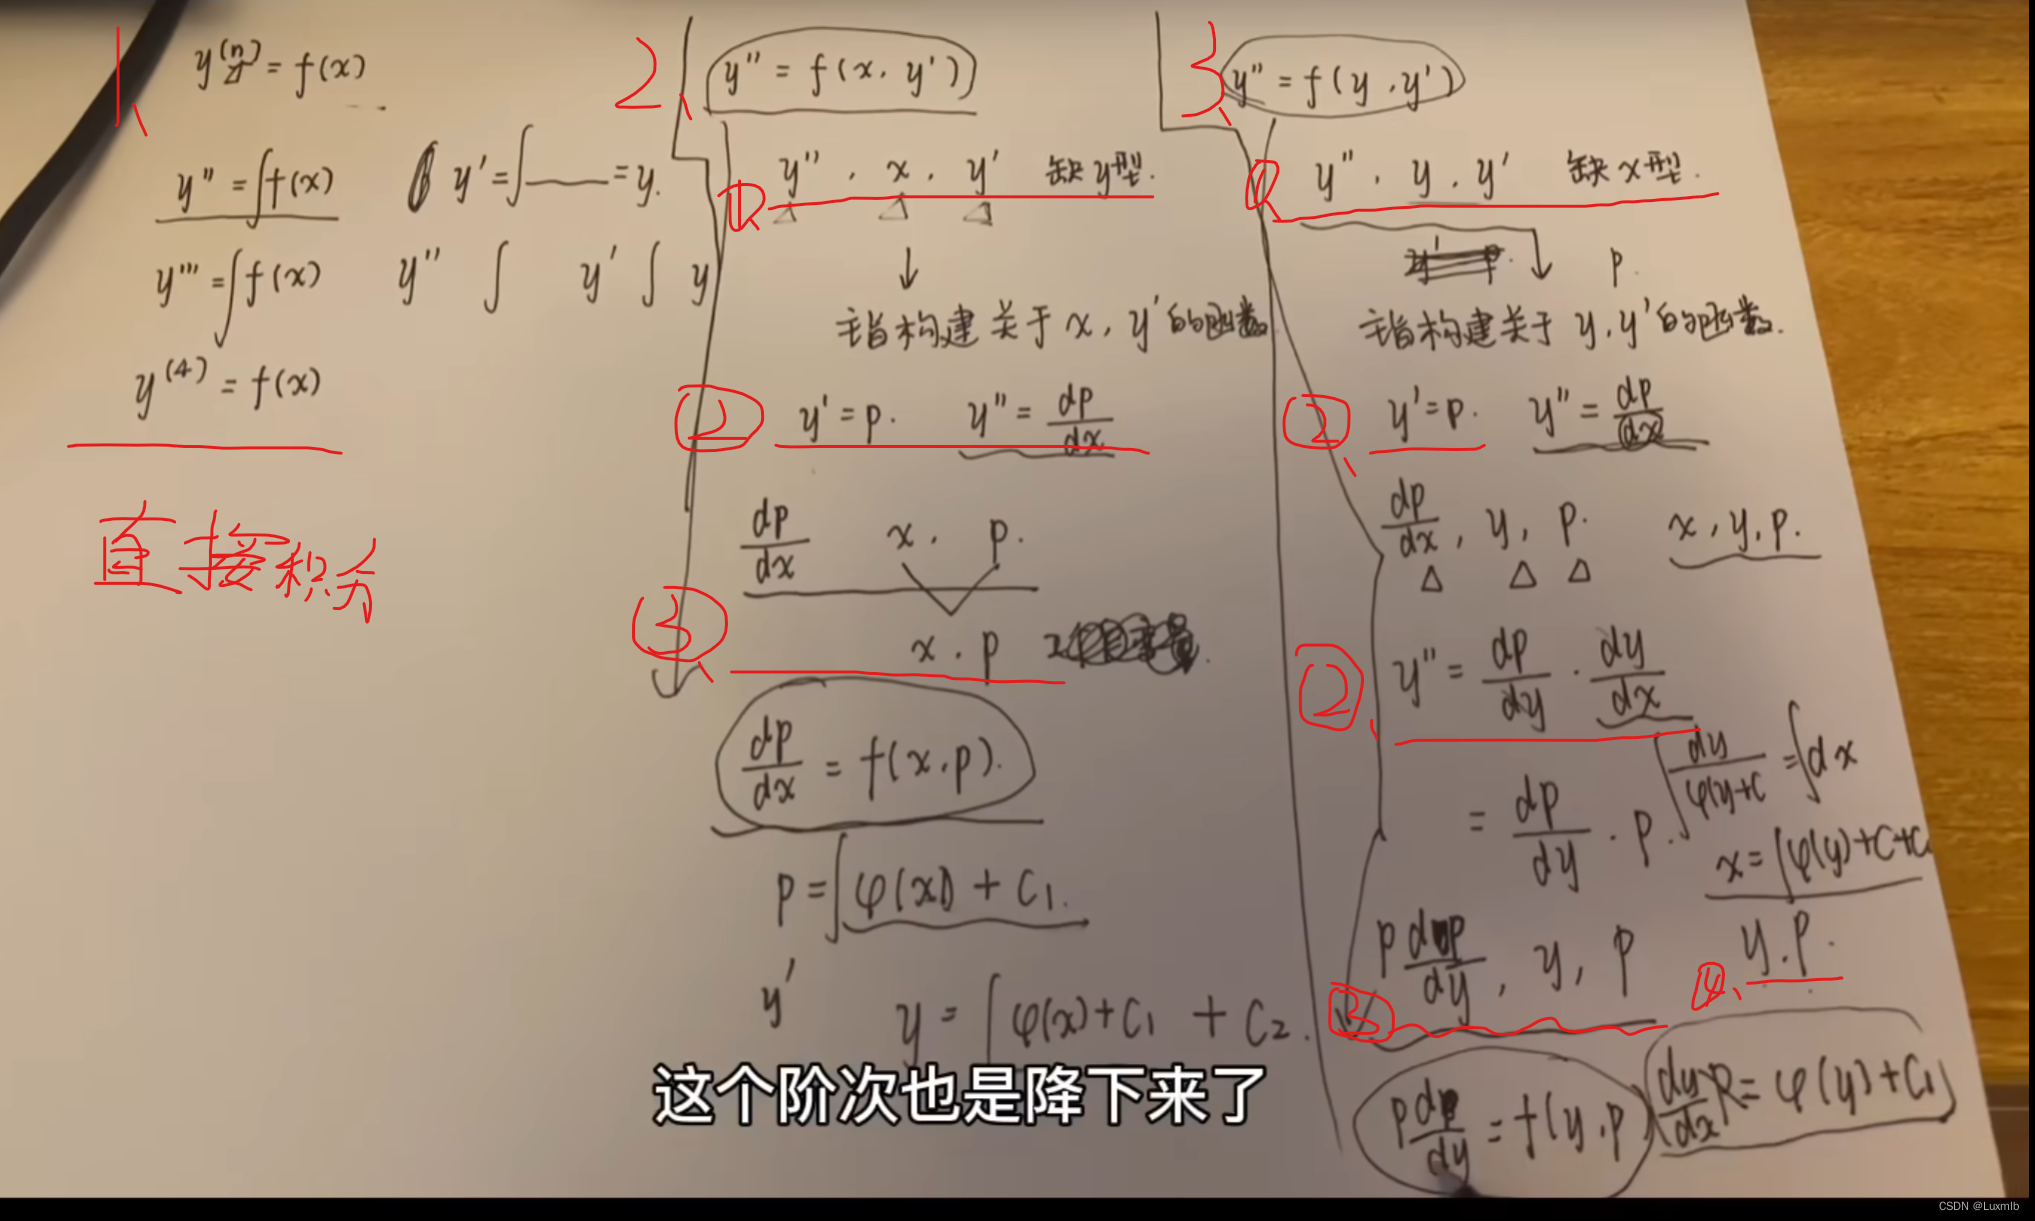 1、
y⁽ⁿ⁾ = f(x)
y'' = ∫f(x) y' = ∫—— = y.
y''' = ∫f(x) y'' ∫ y' ∫ y
y⁽⁴⁾ = f(x)
直接积分
2、
y'' = f(x, y')
① y'', x, y' 缺y型.
↓
构建关于x, y'的函数
② y' = p. y'' = dp/dx
dp/dx x. p.
③、
x. p
dp/dx = f(x, p).
p = ∫φ(x) + C₁.
y'
y = ∫φ(x)+C₁ + C₂.
3、
y'' = f(y, y')
① y'', y, y' 缺x型.
↓ p.
构建关于y, y'的函数.
②、 y' = p. y'' = dp/dx
dp/dx, y, p. x, y, p.
△ △ △
②、 y'' = dp/dy · dy/dx
= dp/dy · p.
∫dy/φ(y)+C = ∫dx
x = ∫φ(y)+C+C
③ p dp/dy, y, p
④、 y. p.
p dp/dy = f(y, p)
dy/dx p = φ(y)+C₁
这个阶次也是降下来了
CSDN @Luxmlb